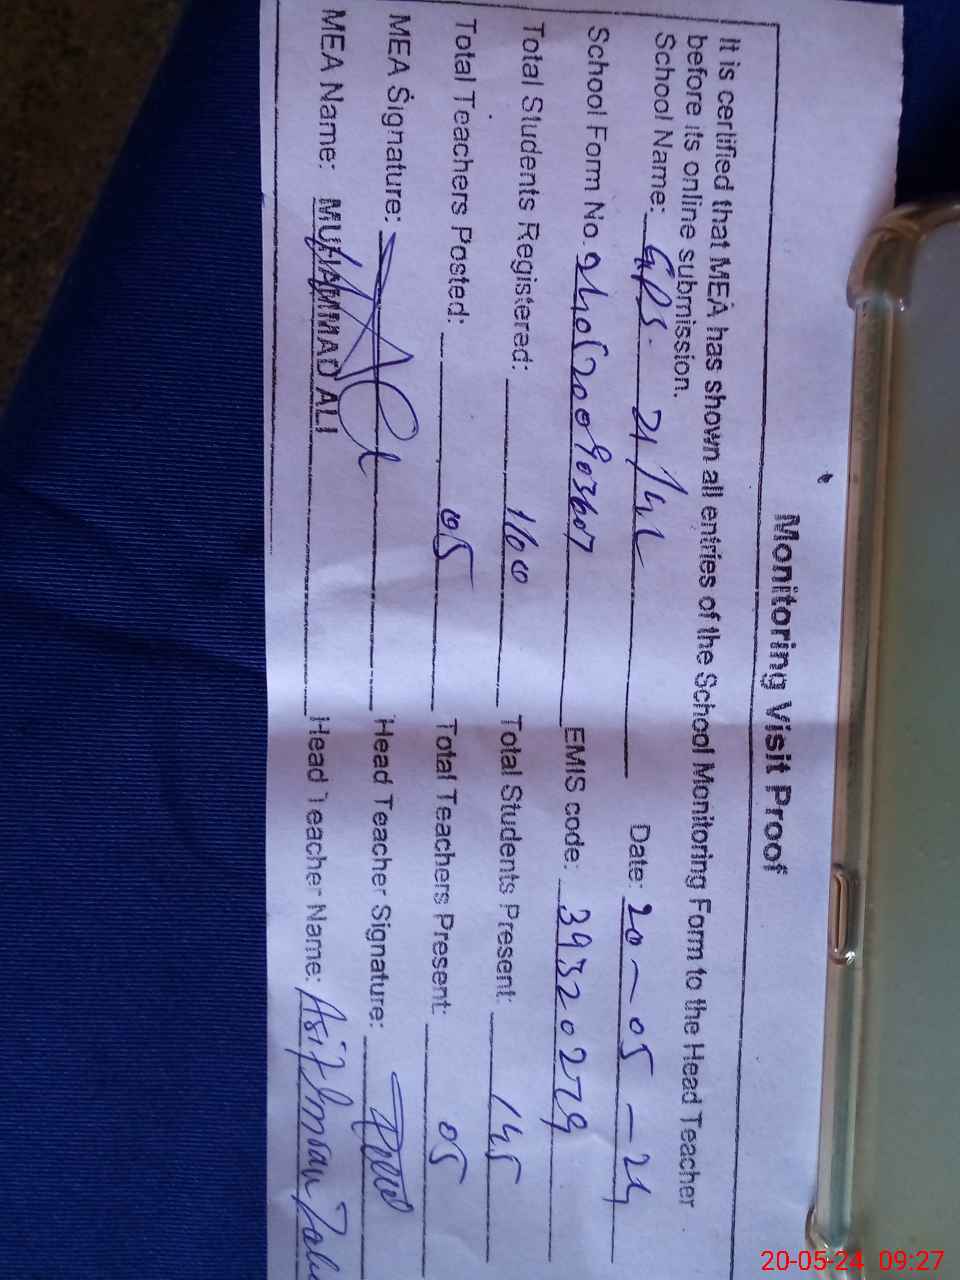 Monitoring Visit Proof
It is certified that MEA has shown all entries of the School Monitoring Form to the Head Teacher
before its online submission.
School Name: GPS. 21/4L Date: 20-05-24
School Form No. EMIS code: 39320279
Total Students Registered: 160 Total Students Present: 145
Total Teachers Posted: 05 Total Teachers Present: 05
MEA Signature: Head Teacher Signature:
MEA Name: MUHAMMAD ALI Head Teacher Name: Asif Imran
20-05-24 09:27